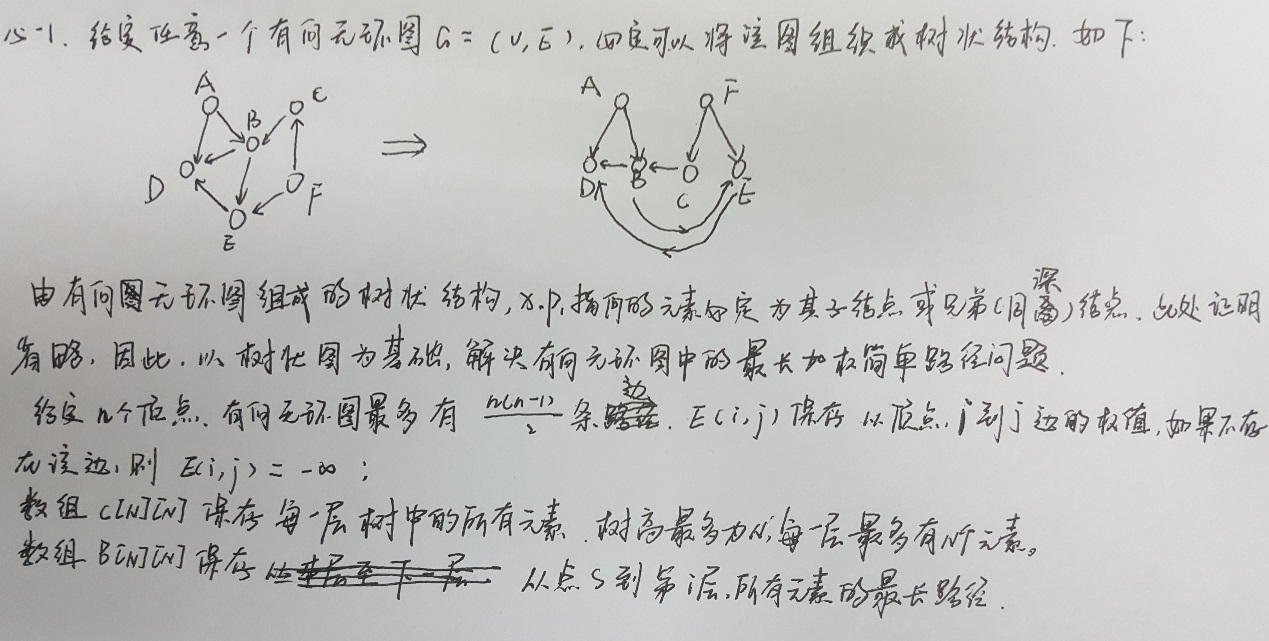 15-1. 给定任意一个有向无环图 G = (V, E), 必定可以将该图组织成树状结构. 如下:
A B C D E F
⇒
A F D B C E
由有向无环图组成的树状结构, x.p, 指向的元素必定为其子结点或兄弟(同深)结点. 此处证明
省略. 因此, 以树状图为基础, 解决有向无环图中的最长加权简单路径问题.
给定 n个顶点, 有向无环图最多有 n(n-1)/2 条边. E(i,j) 保存从顶点 i 到 j 边的权值, 如果不存
在该边, 则 E(i,j) = -∞ ;
数组 C[N][N] 保存每一层树中的所有元素. 树高最多为N, 每一层最多有N个元素。
数组 B[N][N] 保存从点 S 到第 i层, 所有元素的最长路径.